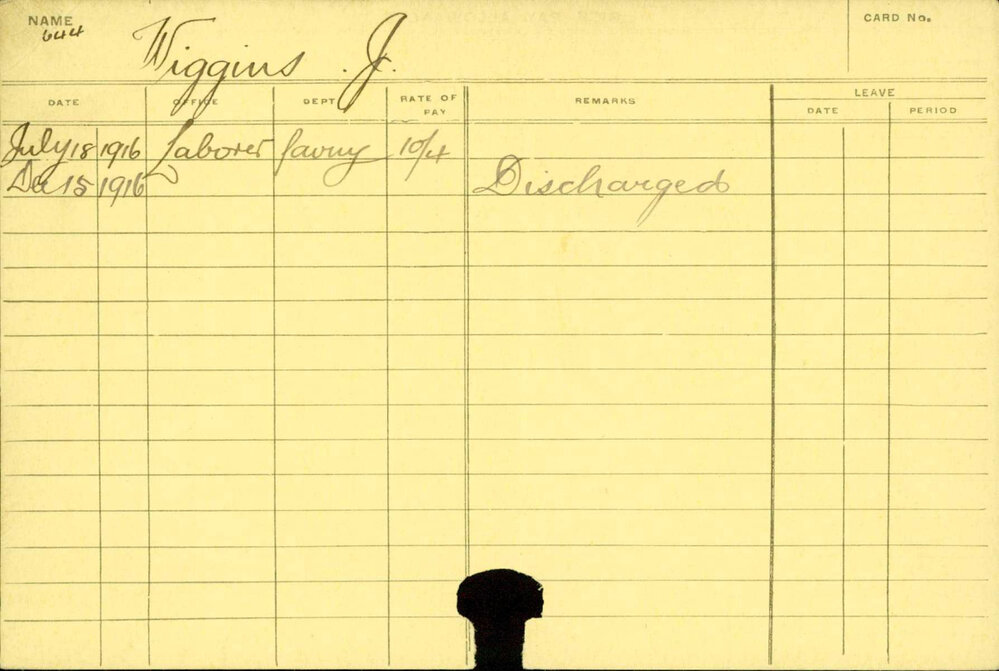 NAME Wiggins J. CARD No.
644
DATE OFFICE DEPT RATE OF PAY REMARKS LEAVE
DATE PERIOD
July 18 1916 Laborer 10/4
Dec 15 1916 Discharged